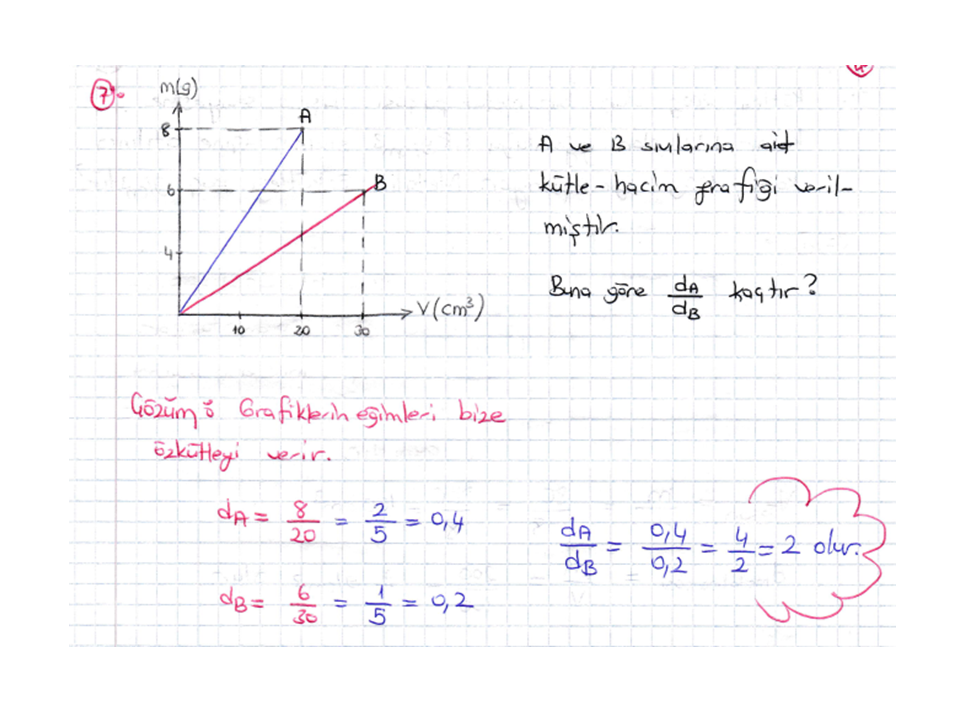 7.
m(g)
A
8
B
6
4
V(cm³)
10 20 30
A ve B sıvılarına ait
kütle-hacim grafiği veril-
miştir.
Buna göre dA/dB kaçtır?
Çözüm: Grafiklerin eğimleri bize
özkütleyi verir.
dA = 8/20 = 2/5 = 0,4
dB = 6/30 = 1/5 = 0,2
dA/dB = 0,4/0,2 = 4/2 = 2 olur.